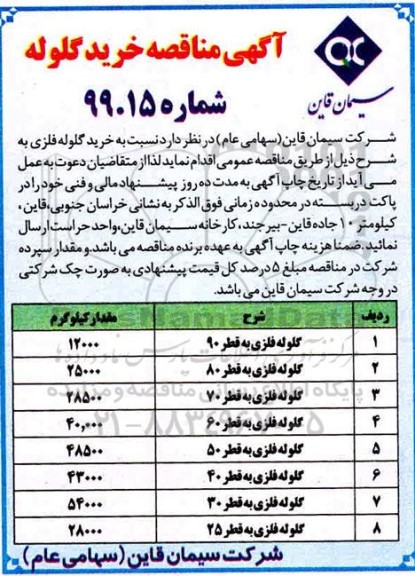 آگهی مناقصه خرید گلوله
شماره ۹۹.۱۵
سیمان قاین
شرکت سیمان قاین (سهامی عام) در نظر دارد نسبت به خرید گلوله فلزی به
شرح ذیل از طریق مناقصه عمومی اقدام نماید لذا از متقاضیان دعوت به عمل
می آید از تاریخ چاپ آگهی به مدت ده روز پیشنهاد مالی و فنی خود را در
پاکت دربسته در محدوده زمانی فوق الذکر به نشانی خراسان جنوبی، قاین،
کیلومتر ۱۰ جاده قاین-بیرجند، کارخانه سیمان قاین، واحد حراست ارسال
نمائید. ضمنا هزینه چاپ آگهی به عهده برنده مناقصه می باشد و مقدار سپرده
شرکت در مناقصه مبلغ ۵ درصد کل قیمت پیشنهادی به صورت چک شرکتی
در وجه شرکت سیمان قاین می باشد.
ردیف شرح مقدار کیلوگرم
۱ گلوله فلزی به قطر ۹۰ ۱۲۰۰۰
۲ گلوله فلزی به قطر ۸۰ ۲۵۰۰۰
۳ گلوله فلزی به قطر ۷۰ ۲۸۵۰۰
۴ گلوله فلزی به قطر ۶۰ ۴۰,۰۰۰
۵ گلوله فلزی به قطر ۵۰ ۴۸۵۰۰
۶ گلوله فلزی به قطر ۴۰ ۴۳۰۰۰
۷ گلوله فلزی به قطر ۳۰ ۵۴۰۰۰
۸ گلوله فلزی به قطر ۲۵ ۲۸۰۰۰
شرکت سیمان قاین (سهامی عام)